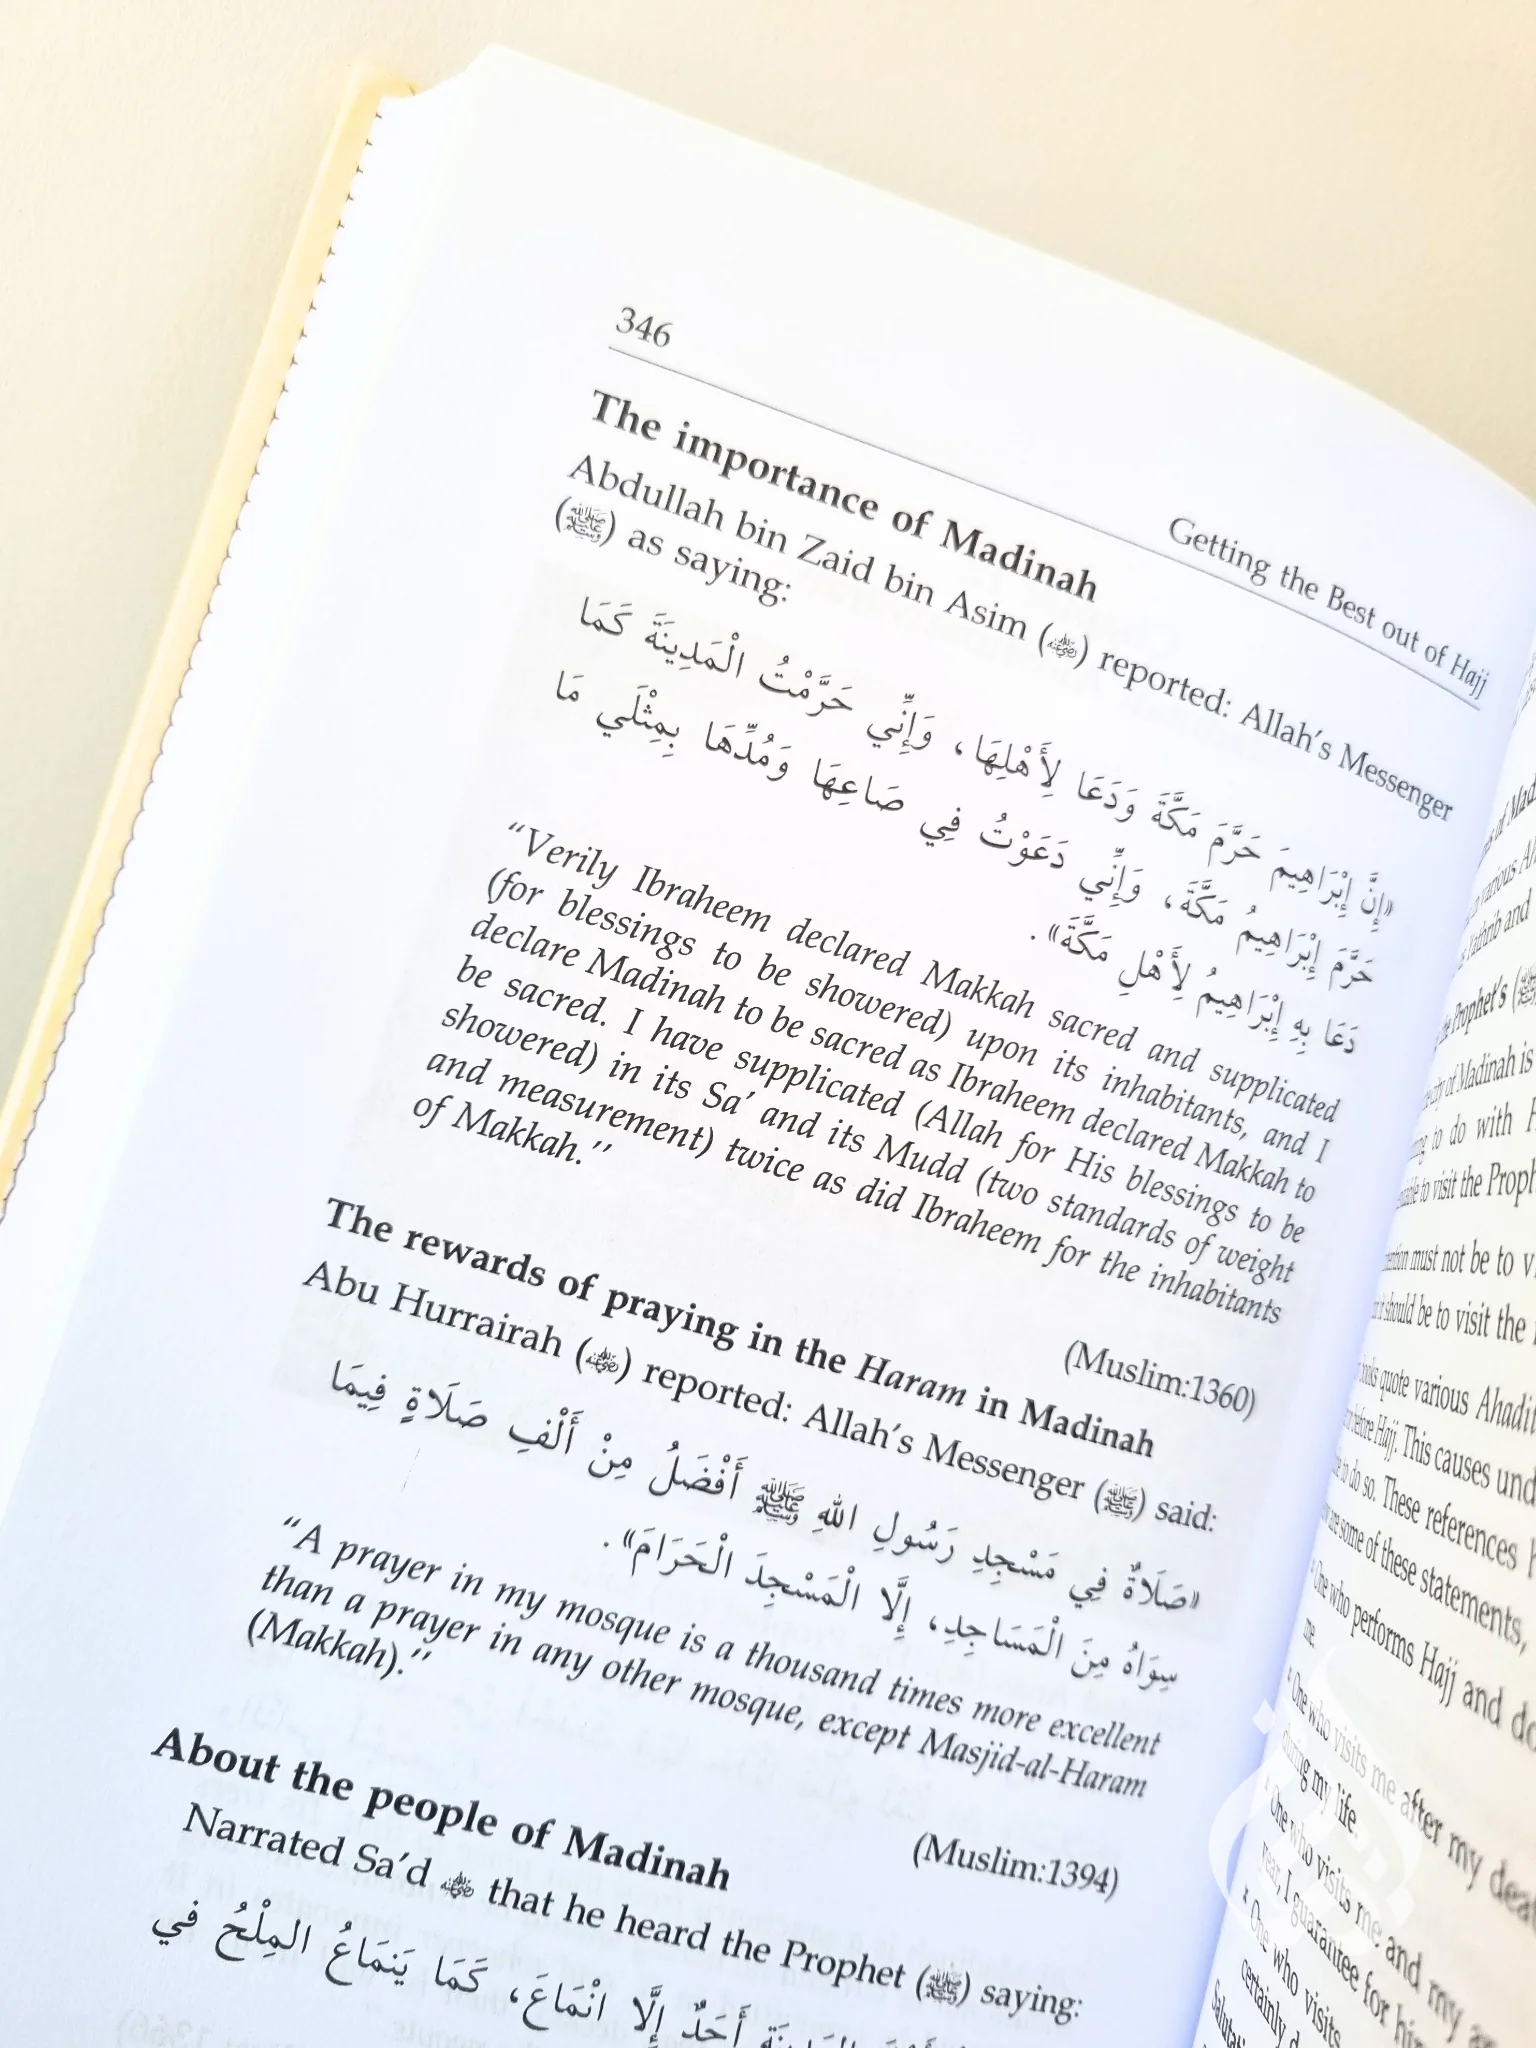 346
Getting the Best out of Hajj
The importance of Madinah
Abdullah bin Zaid bin Asim (رضي الله عنه) reported: Allah's Messenger
(ﷺ) as saying:
«إِنَّ إِبْرَاهِيمَ حَرَّمَ مَكَّةَ وَدَعَا لِأَهْلِهَا، وَإِنِّي حَرَّمْتُ الْمَدِينَةَ كَمَا
حَرَّمَ إِبْرَاهِيمُ مَكَّةَ، وَإِنِّي دَعَوْتُ فِي صَاعِهَا وَمُدِّهَا بِمِثْلَي مَا
دَعَا بِهِ إِبْرَاهِيمُ لِأَهْلِ مَكَّةَ».
"Verily Ibraheem declared Makkah sacred and supplicated
(for blessings to be showered) upon its inhabitants, and I
declare Madinah to be sacred as Ibraheem declared Makkah to
be sacred. I have supplicated (Allah for His blessings to be
showered) in its Sa' and its Mudd (two standards of weight
and measurement) twice as did Ibraheem for the inhabitants
of Makkah.''
(Muslim:1360)
The rewards of praying in the Haram in Madinah
Abu Hurrairah (رضي الله عنه) reported: Allah's Messenger (ﷺ) said:
«صَلَاةٌ فِي مَسْجِدِ رَسُولِ اللهِ ﷺ أَفْضَلُ مِنْ أَلْفِ صَلَاةٍ فِيمَا
سِوَاهُ مِنَ الْمَسَاجِدِ، إِلَّا الْمَسْجِدَ الْحَرَامَ».
"A prayer in my mosque is a thousand times more excellent
than a prayer in any other mosque, except Masjid-al-Haram
(Makkah).''
(Muslim:1394)
About the people of Madinah
Narrated Sa'd رضي الله عنه that he heard the Prophet (ﷺ) saying:
أَحَدٌ إِلَّا انْمَاعَ، كَمَا يَنمَاعُ المِلْحُ في
of Mad
various
Yathrib and
Prophet's (ﷺ
city of Madinah is
to do with
to visit the Proph
must not be to
it should be to visit the
books quote various Ahadit
before Hajj. This causes und
to do so. These references
are some of these statements,
One who performs Hajj and do
me.
One who visits me after my deat
during my life.
One who visits me and my
year, I guarantee for
One who visits
certainly